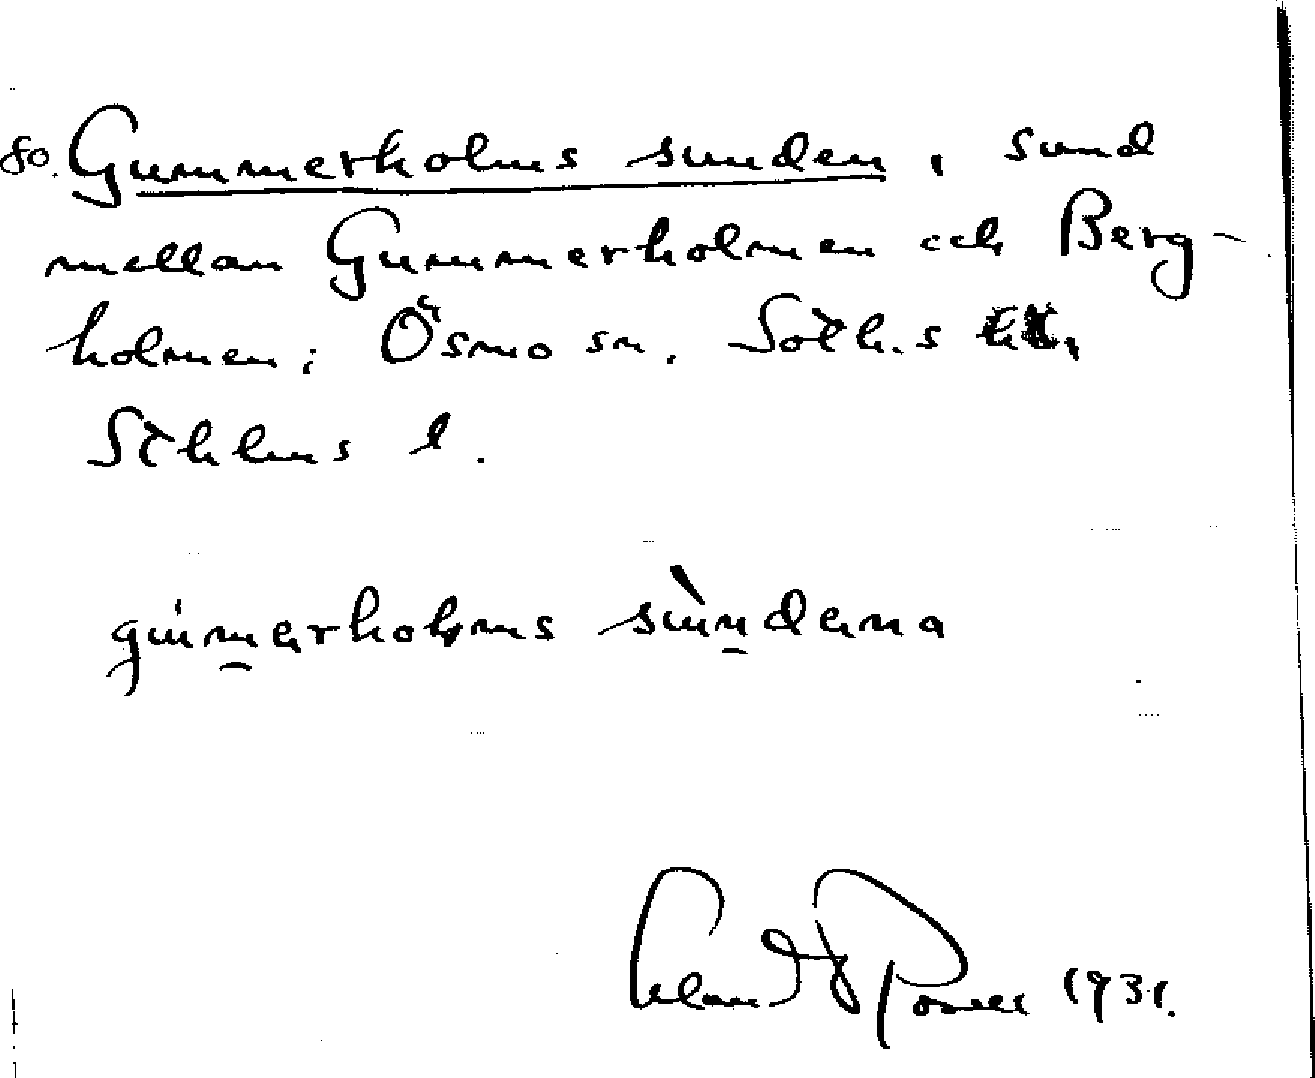 80. Gummerholms sunden, sund
mellan Gummerholmen och Berg-
holmen; Ösmo sn. Soth.s
Sthlms l.
gúmerholms sùndena
1931.